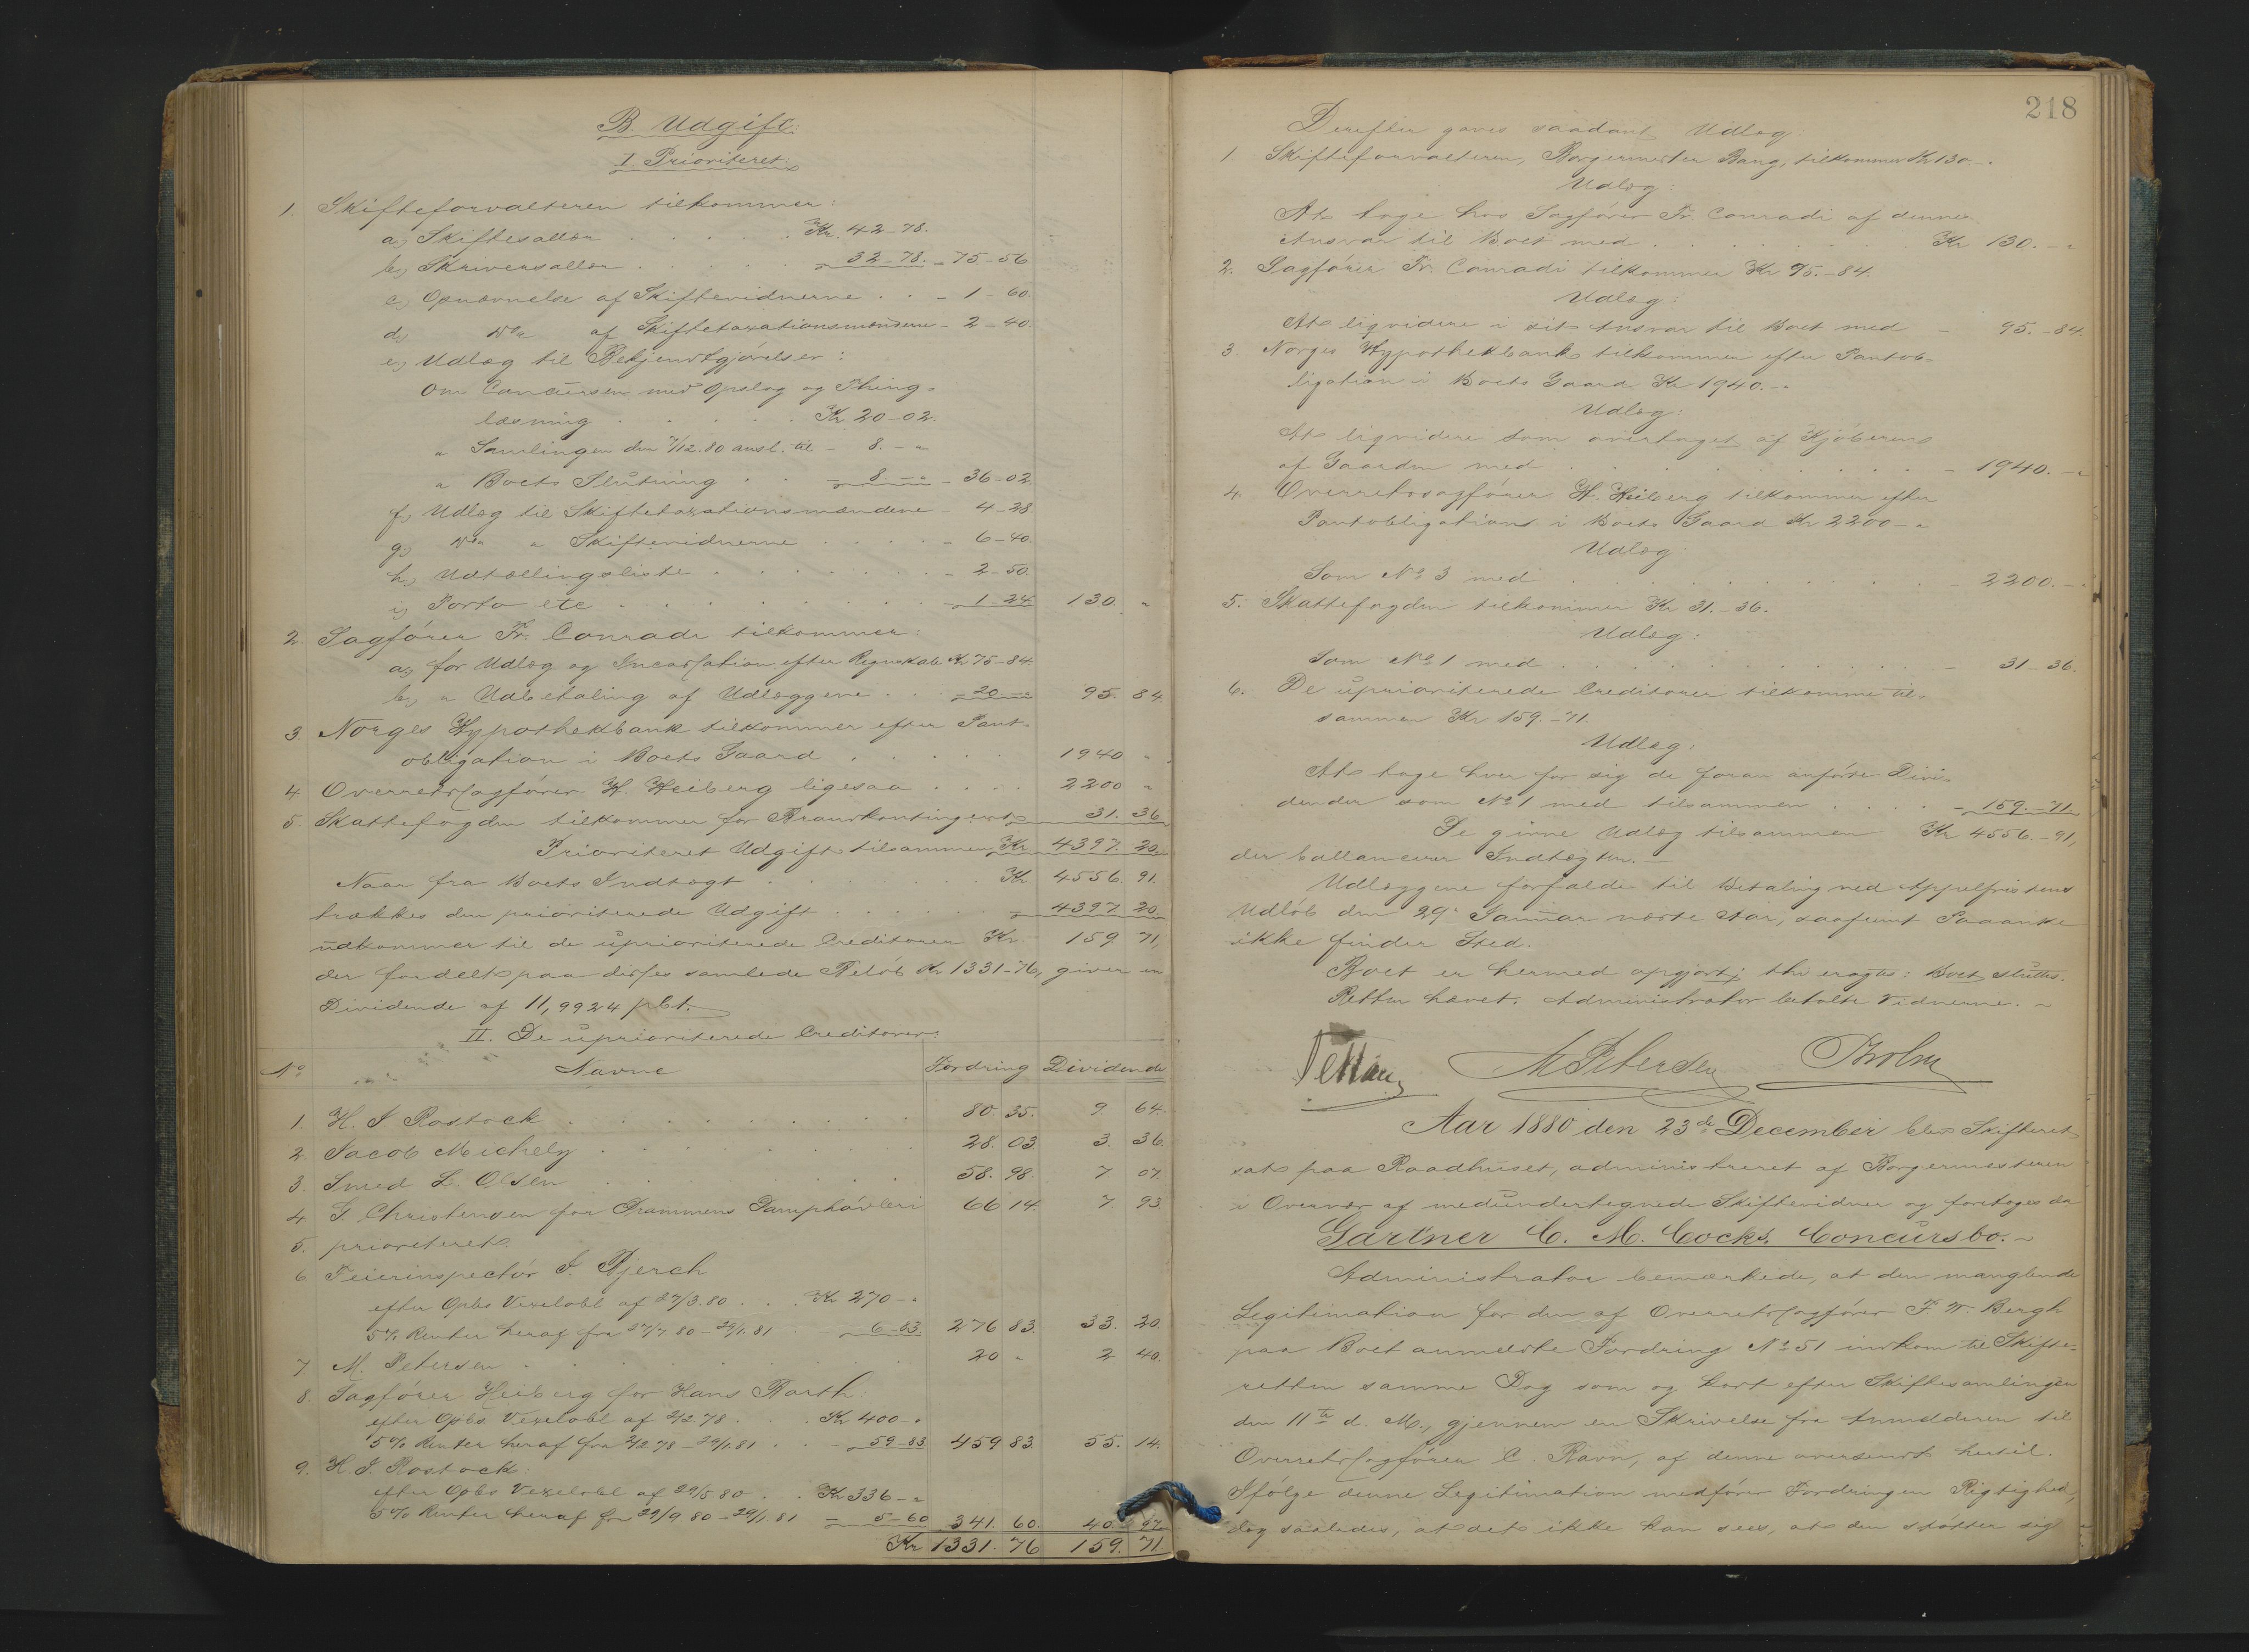 B. Udgift:
I. Prioriteret:
1. Skifteforvalteren tilkommer:
a, Skiftesallær . . . . . Kr. 42-78.
b, Skriversallær . . . . . - 32-78. - 75-56
c, Opnævnelse af Skiftevidnerne . . - 1-60.
d, Do af Skiftetaxationsmændene - 2-40.
e, Udlæg til Bekjendtgjørelser:
Om Concursen med Opslag og Thing-
læsning . . . . . Kr 20-02.
" Samlingen den 7/12.80 ansl. til - 8.-"
" Boets Slutning . . - 8.-" - 36-02.
f, Udlæg til Skiftetaxationsmændene - 4-28.
g, Do " Skiftevidnerne . . . . - 6-40.
h, Udtællingsliste . . . . . . - 2-50.
i, Porto etc . . . . . . . - 1-24 130. "
2. Sagfører Fr. Conradi tilkommer:
a, for Udlæg og Incassation efter Regnskab Kr 75-84
b, " Udbetaling af Udlæggene . . - 20-" 95. 84.
3. Norges Hypothekbank tilkommer efter Pant-
obligation i Boets Gaard . . . . . 1940 "
4. Overretssagfører H. Heiberg ligesaa . . . . 2200 "
5. Skattefogden tilkommer for Brandkontingent 31. 36
Prioriteret Udgift tilsammen Kr 4397. 20.
Naar fra Boets Indtægt . . . . . Kr. 4556. 91.
trækkes den prioriterede Udgift . . . . . - 4397 20.
udkommer til de uprioriterede Creditorer Kr. 159 71,
der fordelt paa disses samlede Beløb Kr 1331-76, giver en
Dividende af 11,9924 pCt.
II. De uprioriterede Creditorer:
No Navne Fordring Dividende
1. H. J. Rostock . . . . . . . . 80 35. 9. 64.
2. Jacob Michely . . . . . . . 28. 03. 3. 36.
3. Smed L. Olsen . . . . . . . 58. 98. 7. 07.
4. G. Christensen for Drammens Damphøvleri 66 14. 7. 93.
5. prioriteret.
6. Feierinspectør J. Bjerch
efter Opbs Vexelobl af 27/3.80 . . . Kr 270-"
5% Renter heraf fra 27/7.80-29/1.81 . - 6-83. 276 83. 33. 20.
7. M. Petersen . . . . . . . . 20 " 2 40.
8. Sagfører Heiberg for Hans Barth:
efter Opbs. Vexelobl af 2/2.78 . . . Kr 400-"
5% Renter heraf fra 2/2.78-29/1.81 . . - 59-83. 459 83. 55. 14.
9. H. J. Rostock:
efter Opbs Vexelobl af 29/5.80 . . Kr 336-"
5% Renter heraf fra 29/9.80-29/1.81 - 5-60 341. 60. 40. 97.
Kr 1331. 76 159. 71.
218
Derefter gaves saadant Udlæg:
1. Skifteforvalteren, Borgermester Bang, tilkommer Kr 130-".
Udlæg:
At tage hos Sagfører Fr. Conradi af dennes
Ansvar til Boet med . . . . . . Kr 130.-"
2. Sagfører Fr. Conradi tilkommer Kr 95.-84.
Udlæg:
At liqvidere i sit Ansvar til Boet med - 95.-84.
3. Norges Hypothekbank tilkommer efter Pantob-
ligation i Boets Gaard Kr 1940.-"
Udlæg:
At liqvidere som overtaget af Kjøberen
af Gaarden med . . . . . . . . . - 1940.-"
4. Overretssagfører H. Heiberg tilkommer efter
Pantobligation i Boets Gaard Kr 2200-"
Udlæg:
Som No 3 med . . . . . . . . . - 2200.-"
5. Skattefogden tilkommer Kr 31.-36.
Udlæg:
Som No 1 med . . . . . . . . . - 31-36.
6. De uprioriterede Creditorer tilkomme til-
sammen Kr 159.-71.
Udlæg:
At tage hver for sig de foran anførte Divi-
dender som No 1 med tilsammen . . . . - 159.-71
De givne Udlæg tilsammen Kr 4556.-91,
der ballancerer Indtægten.-
Udlæggene forfalde til Betaling ved Appelfristens
Udløb den 29de Januar næste Aar, saafremt Paaanke
ikke finder Sted.
Boet er hermed opgjort; thi eragtes: Boet sluttes.
Retten hævet. Administrator betalte Vidnerne.-
M Petersen Bholm
Aar 1880 den 23de December blev Skifteret
sat paa Raadhuset, administreret af Borgermesteren
i Overvær af medundertegnede Skiftevidner og foretoges da
Gartner C. M. Cocks. Concursbo.-
Administrator bemærkede, at den manglende
Legitimation for den af Overretssagfører F. W. Bergh
paa Boet anmeldte Fordring No 51 indkom til Skifte-
retten samme Dag som og kort efter Skiftesamlingen
den 11te d. M., gjennem en Skrivelse fra Anmelderen til
Overretssagfører C. Ravn, af denne oversendt hertil.
Ifølge denne Legitimation medfører Fordringen Rigtighed,
dog saaledes, at det ikke kan sees, at den støtter sig